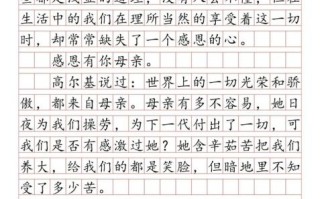 生活中的我们在理所当然的享受着这一切
时，却常常缺失了一个感恩的心。
感恩有你母亲。
高尔基说过：世界上的一切光荣和骄
傲，都来自母亲。母亲有多不容易，她日
夜为我们操劳，为下一代付出了一切，可
我们是否有感激过她？她含辛茹苦把我们
养大，给我们的都是笑脸，但暗地里不知
受了多少苦。